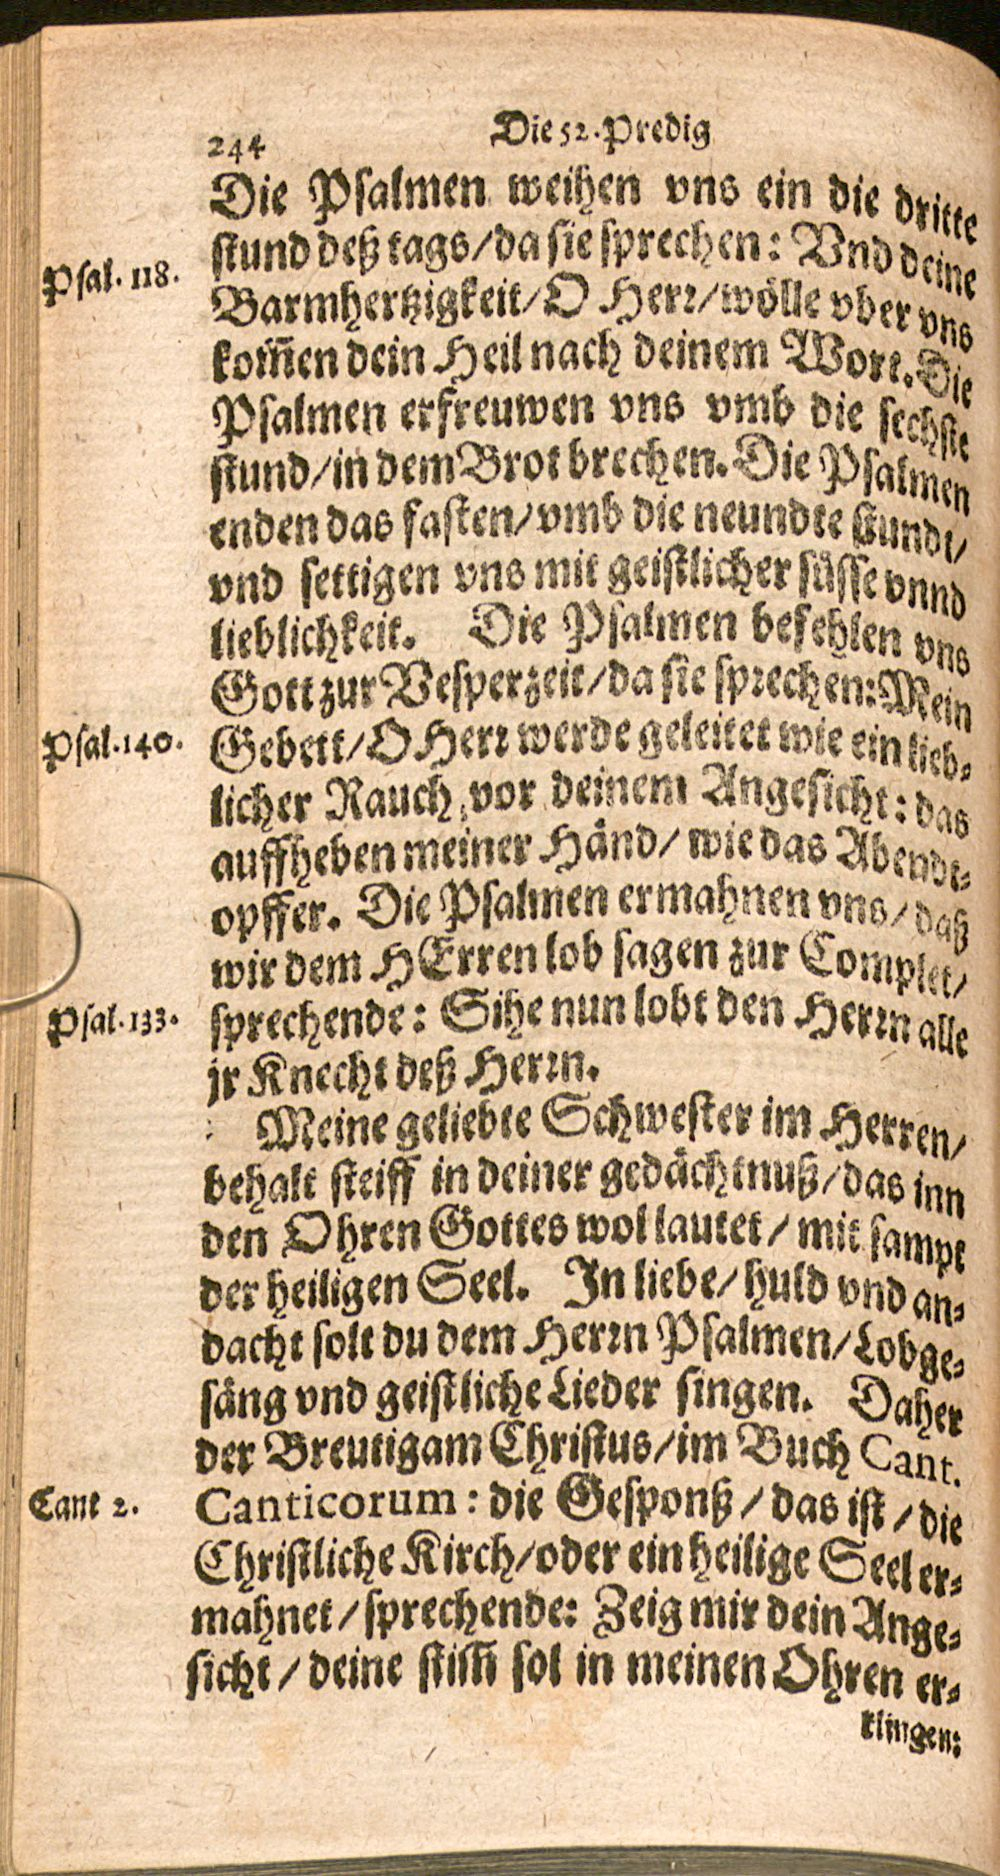 244 Die 52. Predig
Die Psalmen weihen vns ein die dritte
stund deß tags/da sie sprechen: Vnd deine
Psal. 118.
Barmhertzigkeit/O Herr/wölle vber vns
kom̃en dein Heil nach deinem Wort. Die
Psalmen erfreuwen vns vmb die sechste
stund/in dem Brot brechen. Die Psalmen
enden das fasten/vmb die neundte stundt/
vnd settigen vns mit geistlicher süsse vnnd
lieblichkeit. Die Psalmen befehlen vns
Gott zur Vesperzeit/da sie sprechen: Mein
Psal. 140.
Gebett/O Herr werde geleitet wie ein lieb-
licher Rauch, vor deinem Angesicht: das
auffheben meiner Händ/wie das Abendt-
opffer. Die Psalmen ermahnen vns/daß
wir dem HErren lob sagen zur Complet/
Psal. 133.
sprechende: Sihe nun lobt den Herrn alle
jr Knecht deß Herrn.
Meine geliebte Schwester im Herren/
behalt steiff in deiner gedächtnuß/das inn
den Ohren Gottes wol lautet/mit sampt
der heiligen Seel. In liebe/huld vnd an-
dacht solt du dem Herrn Psalmen/Lobge-
säng vnd geistliche Lieder singen. Daher
der Breutigam Christus/im Buch Cant.
Cant 2.
Canticorum: die Gesponß/das ist/die
Christliche Kirch/oder ein heilige Seel er-
mahnet/sprechende: Zeig mir dein Ange-
sicht/deine stim̃ sol in meinen Ohren er-
klingen: